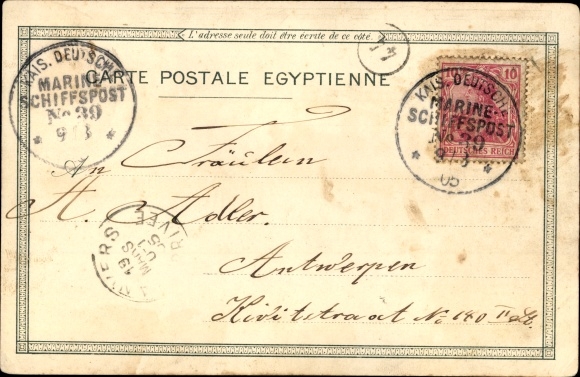 L'adresse seule doit être écrite de ce côté.
CARTE POSTALE EGYPTIENNE
KAIS. DEUTSCHE
MARINE-
SCHIFFSPOST
No 39
9 3
KAIS. DEUTSCHE
MARINE-
SCHIFFSPOST
No 39
9 3
05
10
DEUTSCHES REICH
An Fräulein
A. Adler.
Antwerpen
No 140 II
ANVERS
19
MARS
05